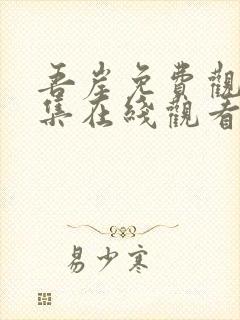 吾岸免費觀
集在綫觀看
易少寒